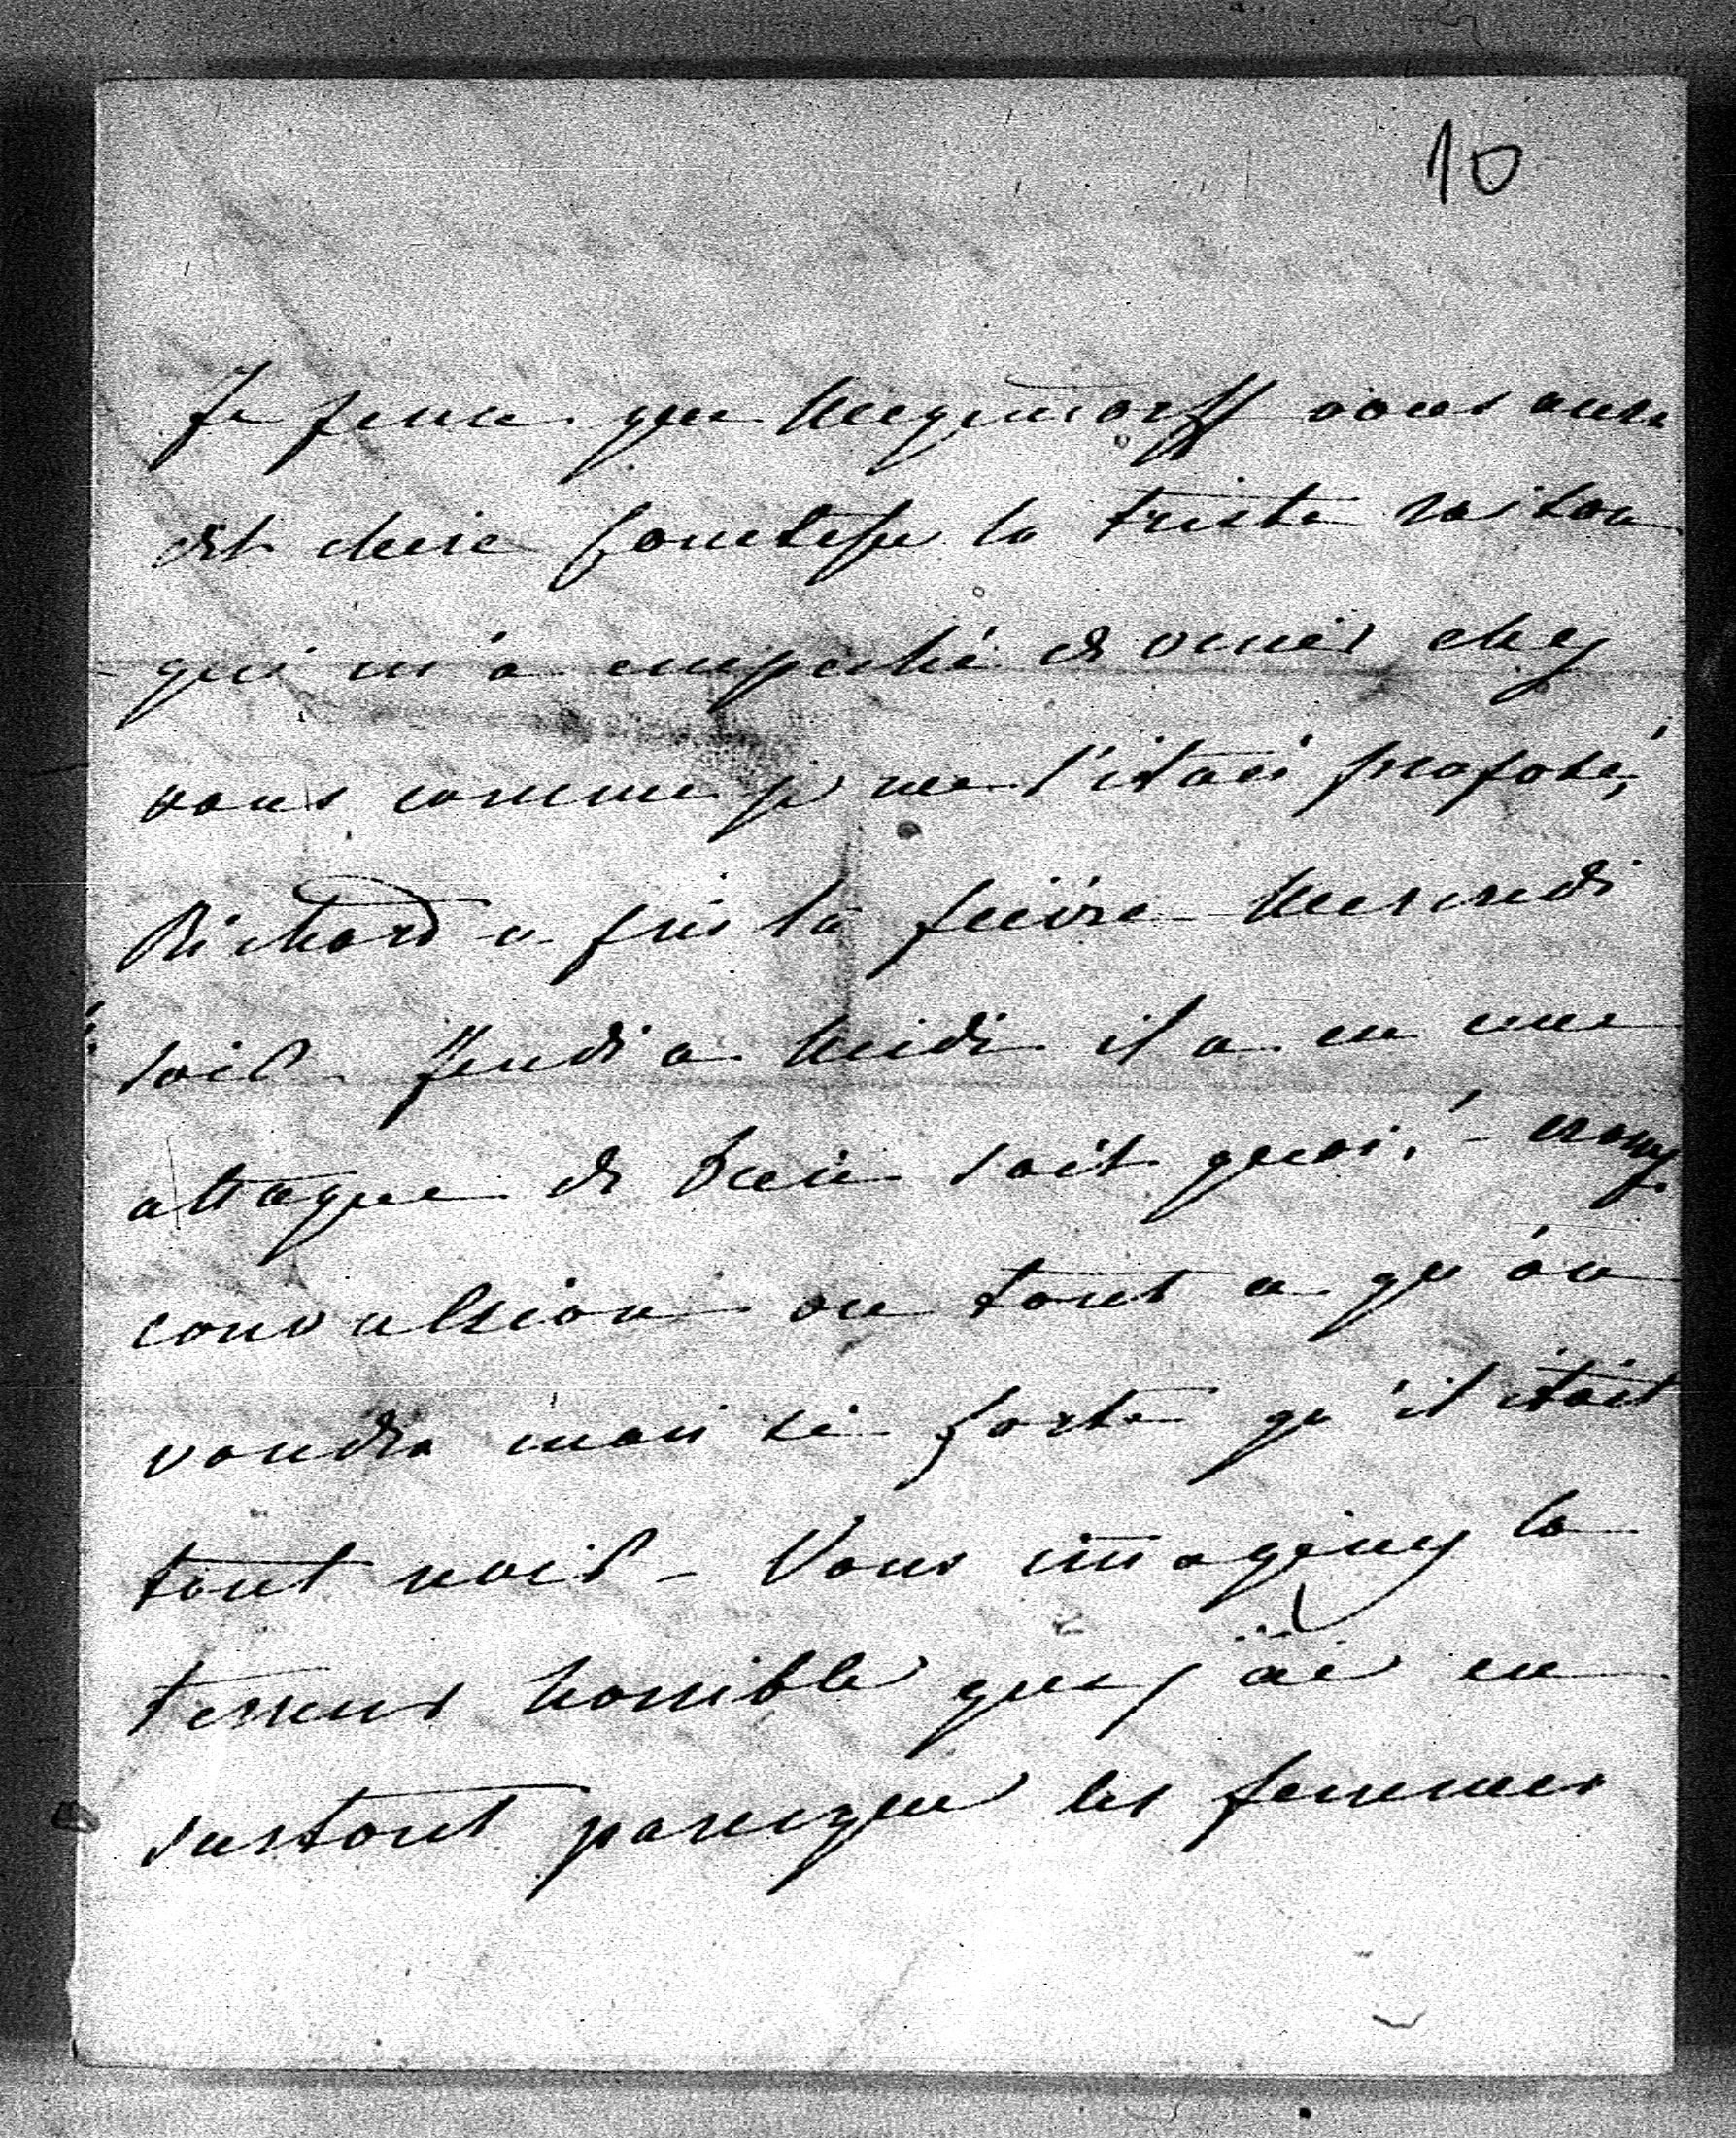 10
Je pense que Meyendorff vous aura
dit chère Comtesse la triste raison
qui m'a empeché de venir chez
vous comme je me l'étais proposé,
Richard a pris la fièvre Mercredi
soir – Jeudi a Midi il a eu une
attaque de Dieu sait quoi! –
convulsion ou tout a qu'on
voudra mais si forte qu'il était
tout noir – Vous imaginez la
terreur horrible que j'ai eu
surtout parceque les femmes